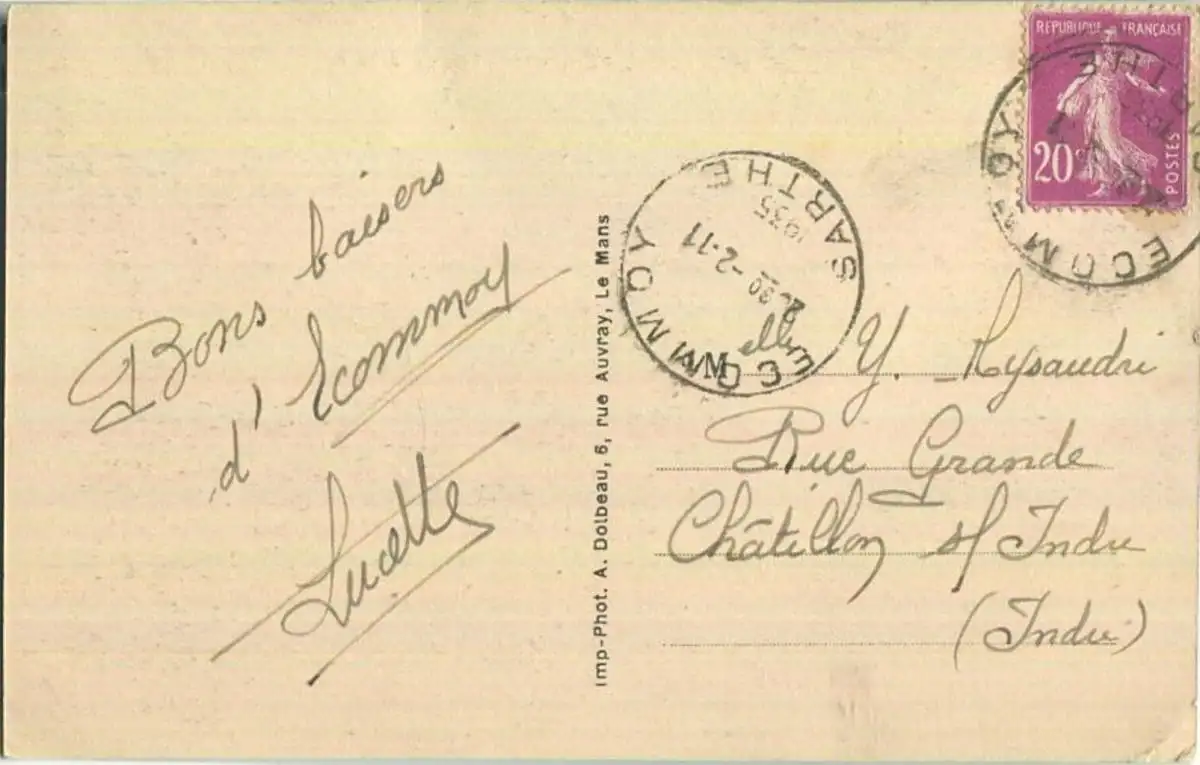 Bons baisers
d'Ecommoy
Lucette
Imp-Phot. A. Dolbeau, 6, rue Auvray, Le Mans
RÉPUBLIQUE FRANÇAISE
20c
POSTES
ECOMMOY
SARTHE
-2-11
1935
ECOMMOY
SARTHE
M elle Y. Lysandri
Rue Grande
Châtillon s/ Indre
(Indre)